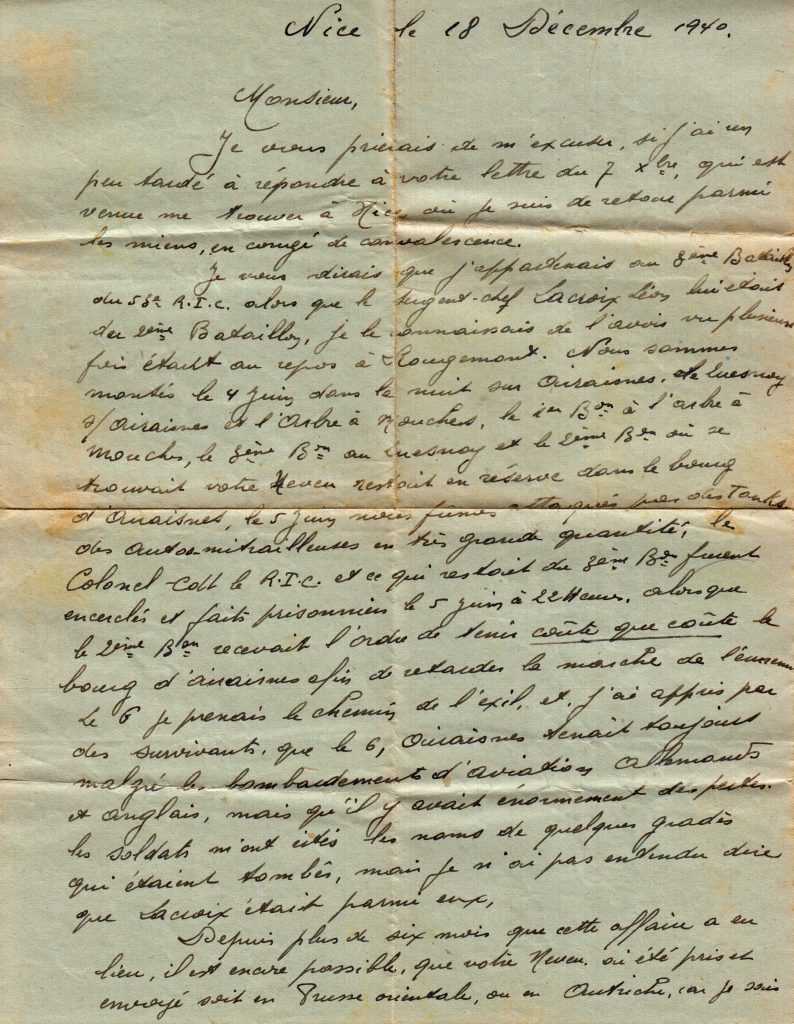 Nice le 18 Décembre 1940.
Monsieur,
Je vous prierais de m'excuser, si j'ai un
peu tardé à répondre à votre lettre du 7 xbre, qui est
venue me trouver à Nice où je suis de retour parmi
les miens, en congé de convalescence.
Je vous dirais que j'appartenais au 3ème Bataillon
du 53e R.I.C. alors que le sergent-chef Lacroix Léon lui était
du 2ème Bataillon, je le connaissais de l'avoir vu plusieurs
fois étant au repos à Rougemont. Nous sommes
montés le 4 Juin dans la nuit sur Airaisnes, le Quesnoy
s/Airaisnes et l'Arbre à Mouches, le 1er Bon à l'arbre à
mouches, le 3ème Bon au Quesnoy et le 2ème Bon où se
trouvait votre Neveu restait en réserve dans le bourg
d'Airaisnes, le 5 Juin nous fûmes attaqués par des Tanks
des autos-mitrailleuses en très grande quantité, le
Colonel-Cdt le R.I.C. et ce qui restait du 3ème Bon furent
encerclés et faits prisonniers le 5 Juin à 22 Heures. alors que
le 2ème Bon recevait l'ordre de tenir coûte que coûte le
bourg d'Airaisnes afin de retarder la marche de l'ennemi
Le 6 je prenais le chemin de l'exil, et j'ai appris par
des survivants, que le 6, Airaisnes tenait toujours
malgré les bombardements d'aviations allemands
et anglais, mais qu'il y avait énormement des pertes.
les soldats m'ont cités les noms de quelques gradés
qui étaient tombés, mais je n'ai pas entendu dire
que Lacroix était parmi eux,
Depuis plus de six mois que cette affaire a eu
lieu, il est encore possible, que votre Neveu ai été pris et
envoyé soit en Prusse orientale, ou en Autriche, car je sais